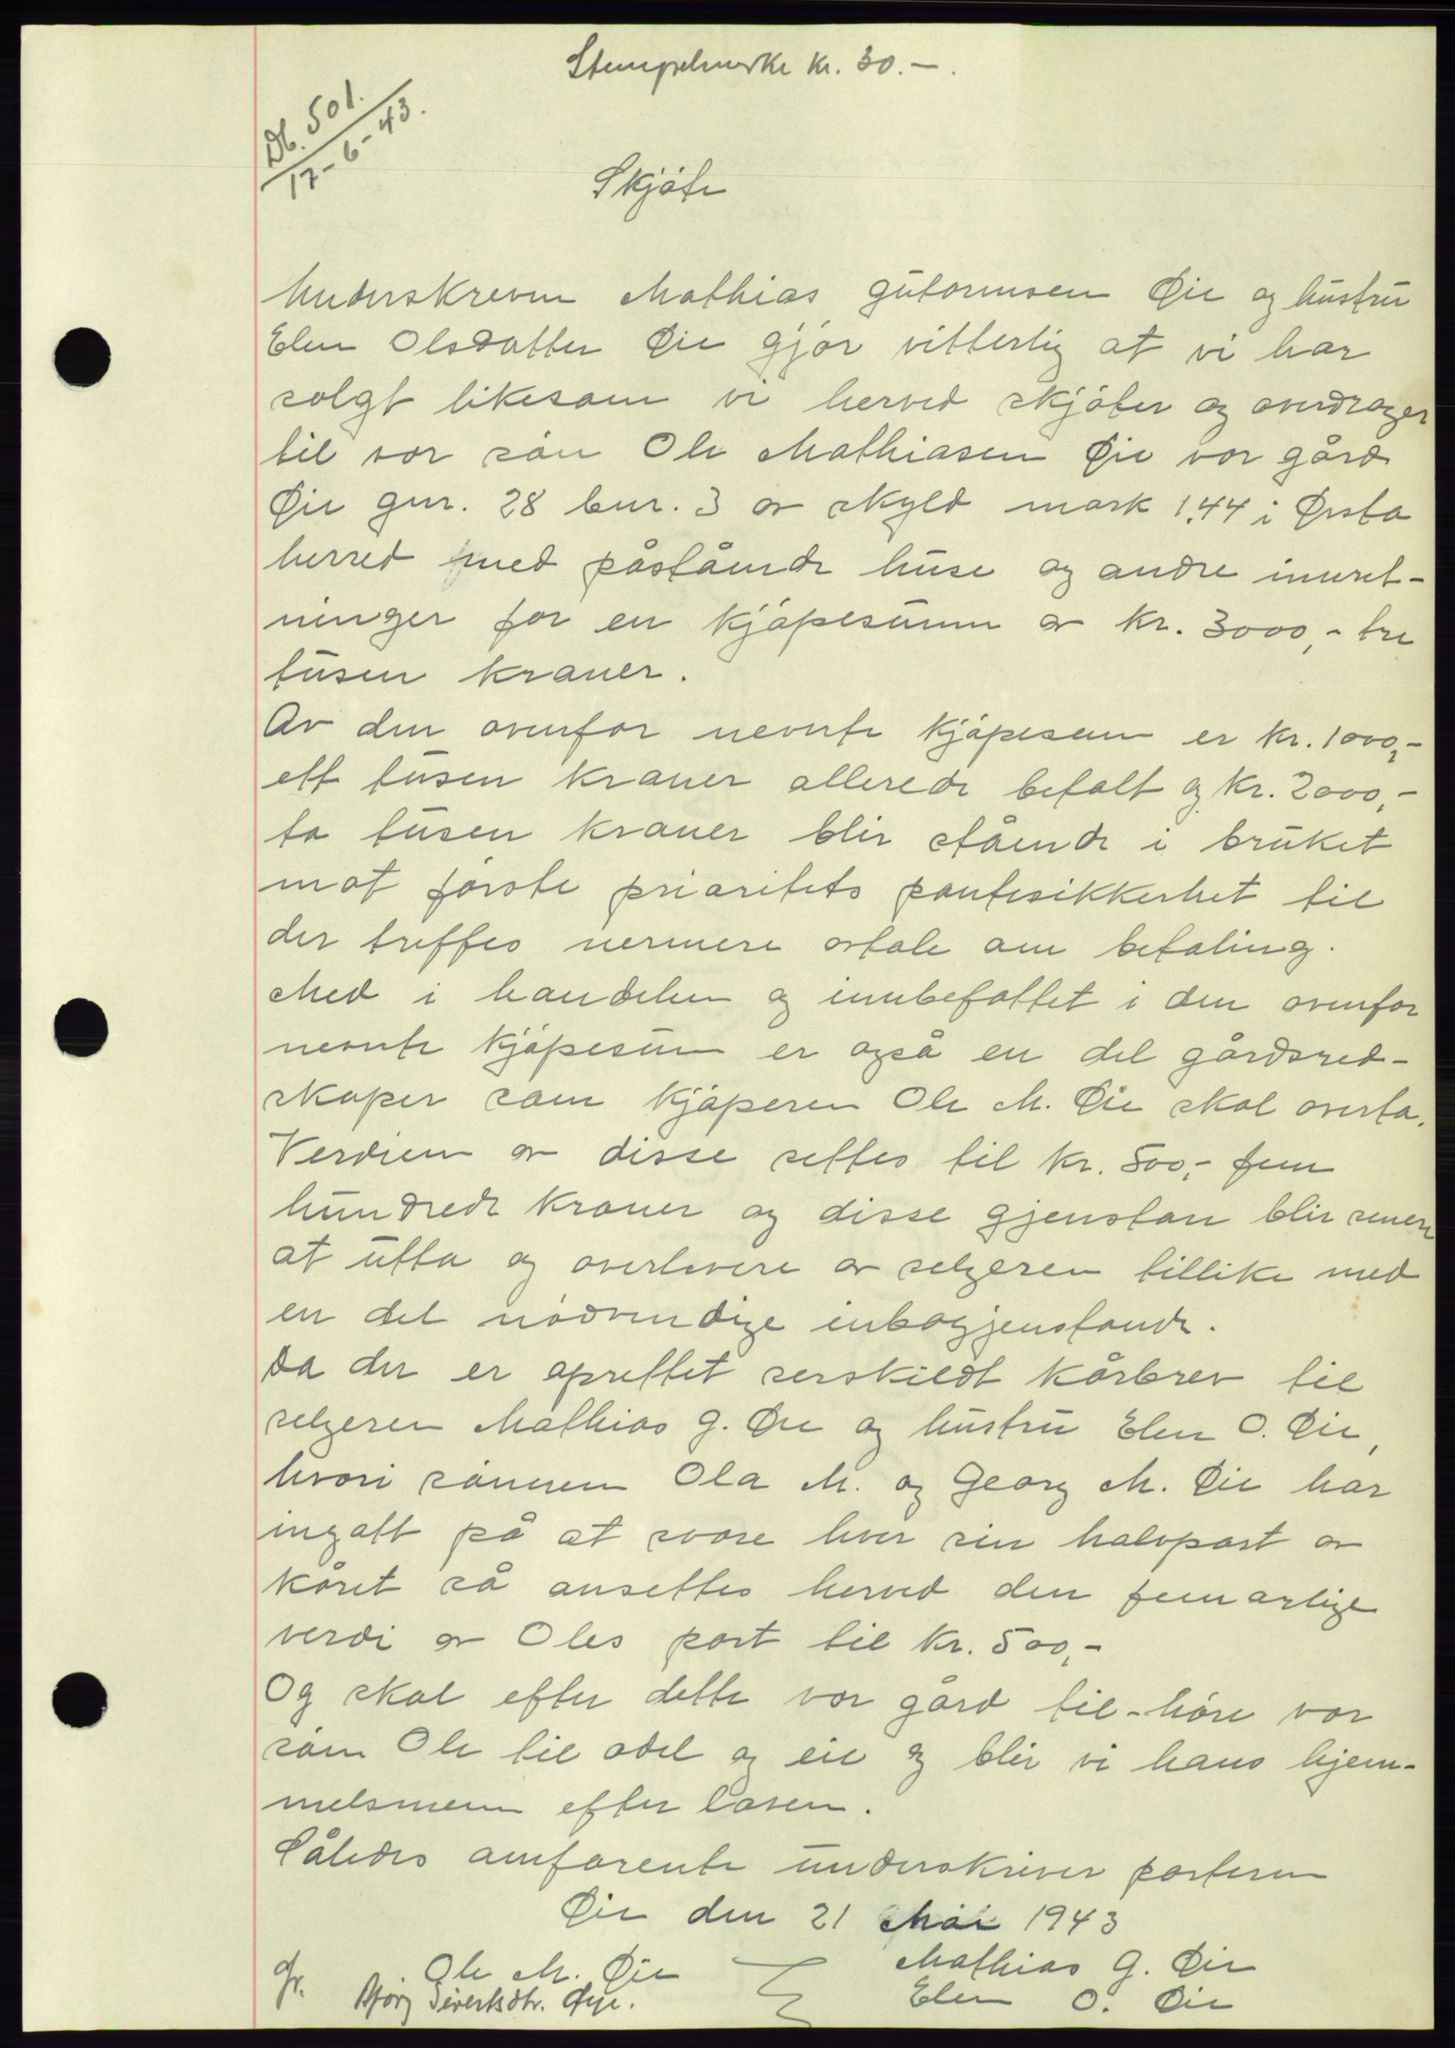 Stempelmerke kr. 30.-.
Db. 501.
17-6-43.
Skjöte
Underskreven Mathias Gutormsen Øie og hustru
Elen Olsdatter Øie gjör vitterlig at vi har
solgt likesom vi herved skjöter og overdrager
til vor sön Ole Mathiasen Øie vor gård
Øie gnr. 28 bnr. 3 av skyld mark 1,44 i Ørsta
herred med påstående huse og andre innret-
ninger for en kjöpesumm av kr. 3000,- tre
tusen kroner.
Av den ovenfor nevnte kjöpesum er kr. 1000,-
ett tusen kroner allerede betalt og kr. 2000,-
to tusen kroner blir stående i bruket
mot förste prioritets pantesikkerhet til
der treffes nermere avtale om betaling.
Med i handelen og innbefattet i den ovenfor
nevnte kjöpesum er også en del gårdsred-
skaper som kjöperen Ole M. Øie skal overta.
Verdien av disse settes til kr. 500,- fem
hundrede kroner og disse gjenstan blir senere
at utta og overlevere av selgeren tillike med
en del nödvendige inbogjenstande.
Da der er oprettet serskildt kårbrev til
selgeren Mathias G. Øie og hustru Elen O. Øie,
hvori sönnen Ola M. og Georg M. Øie har
ingått på at svare hver sin halvpart av
kåret så ansettes herved den femarlige
verdi av Oles part til kr. 500,-
Og skal efter dette vor gård til-höre vor
sön Ole til odel og eie og blir vi hans hjem-
melsmenn efter loven.
Således omforente underskriver parteren
Øie den 21 Mai 1943
Ole M. Øie Mathias G. Øie
gr. Björg Sivertsdtr. Øye. Elen O. Øie